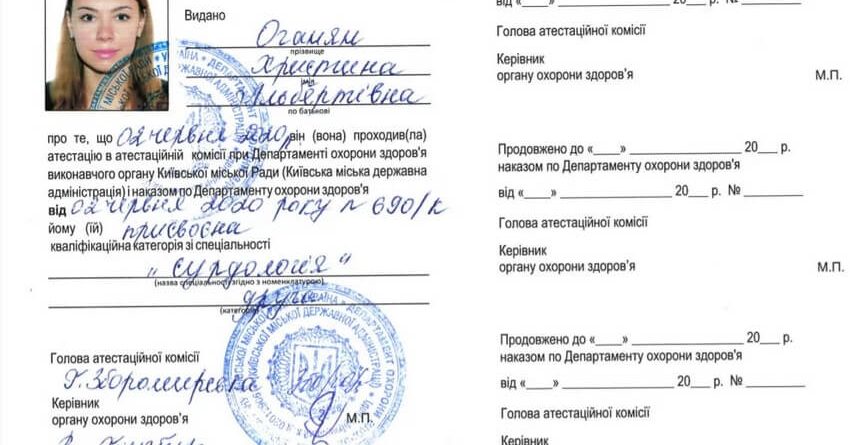 Видано
Оганян
прізвище
Христина
ім'я
Альбертівна
по батькові
про те, що 02 червня 2020р. він (вона) проходив(ла)
атестацію в атестаційній комісії при Департаменті охорони здоров'я
виконавчого органу Київської міської Ради (Київська міська державна
адміністрація) і наказом по Департаменту охорони здоров'я
від 02 червня 2020 року № 690/к
йому (їй) присвоєна
кваліфікаційна категорія зі спеціальності
"сурдологія"
(назва спеціальності згідно з номенклатурою)
друга
(категорія)
Голова атестаційної комісії
Г. Збороmирська
Керівник
органу охорони здоров'я
М.П.
від «____» ____ 20__ р. № ____
Голова атестаційної комісії
Керівник
органу охорони здоров'я
М.П.
Продовжено до «____» ____ 20__ р.
наказом по Департаменту охорони здоров'я
від «____» ____ 20__ р. № ____
Голова атестаційної комісії
Керівник
органу охорони здоров'я
М.П.
Продовжено до «____» ____ 20__ р.
наказом по Департаменту охорони здоров'я
від «____» ____ 20__ р. № ____
Голова атестаційної комісії
Керівник